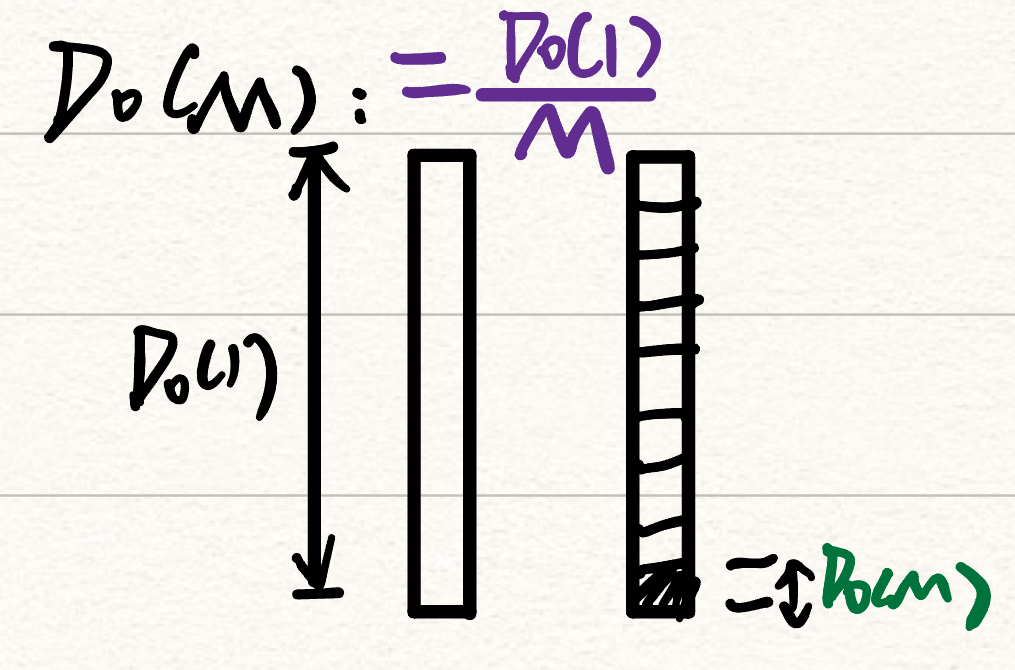 D₀(M): = D₀(1)/M
D₀(1)
= D₀(M)